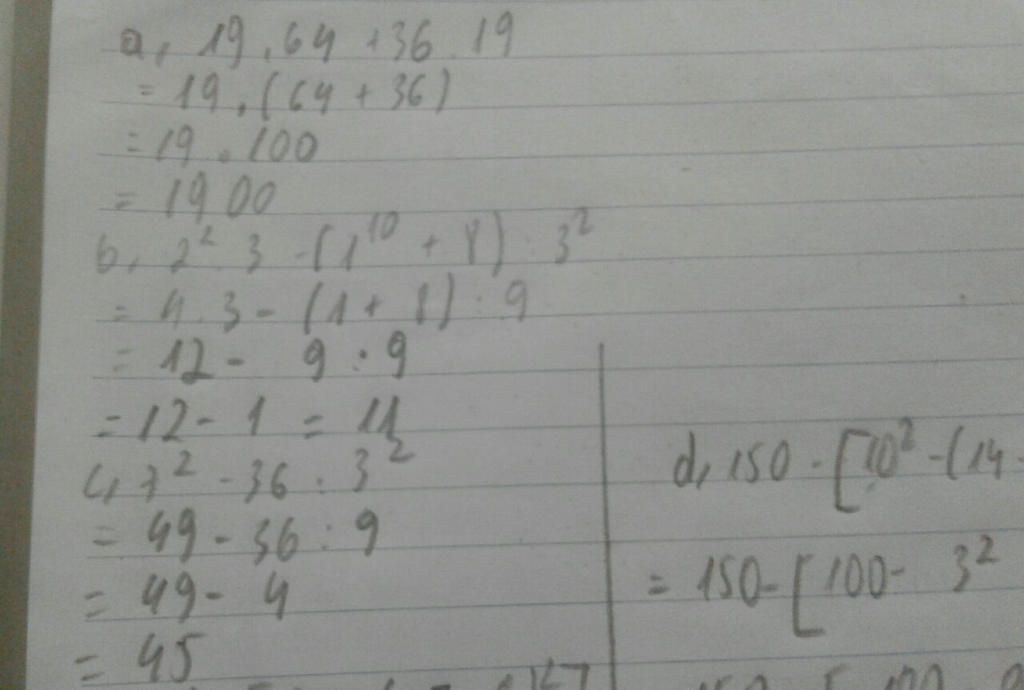 a, 19.64 + 36.19
= 19.(64 + 36)
= 19.100
= 1900
b, 2² 3 - (1¹⁰ + 8) : 3²
= 4.3 - (1 + 8) : 9
= 12 - 9 : 9
= 12 - 1 = 11
c, 7² - 36 : 3²
= 49 - 36 : 9
= 49 - 4
= 45
d, 150 - [10² - (14 -
= 150 - [100 - 3²